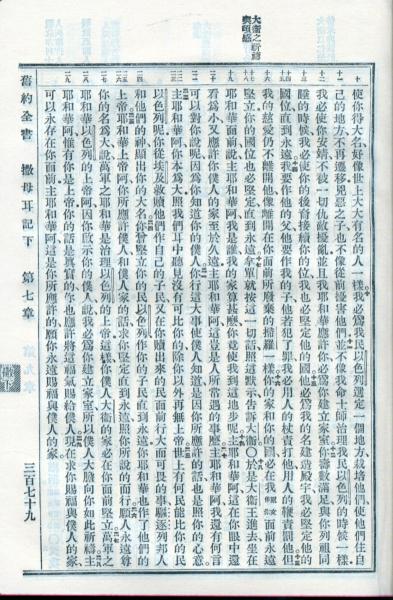 大衛之祈禱
使你得大名好像世上大大有名的人一樣我必為我民以色列選定一個地方栽培他們使他們住自
己的地方不再遷移兇惡之子也不像從前擾害他們並不像我命士師治理我民以色列的時候一樣
我必使你安靖不被一切仇敵擾亂並且我耶和華應許你必為你建立家室你壽數滿足與你列祖同
睡的時候我必使你的後裔接續你的位我也必堅定他的國他必為我的名建造殿宇我必堅定他的
國位直到永遠我要作他的父他要作我的子他若犯了罪我必用人的杖責打他用人的鞭責罰他但
我的慈愛仍不離開他像離開在你面前所廢棄的掃羅一樣你的家和你的國必在我面前永遠
堅立你的國位也必堅定直到永遠拿單就按這一切話照這默示告訴大衛○於是大衛王進去坐在
耶和華面前說主耶和華阿我是誰我的家算甚麼你竟使我到這地步呢主耶和華阿這在你眼中還
看為小又應許你僕人的家至於久遠主耶和華阿這豈是人所常遇的事麼主耶和華阿我還有何言
可以對你說呢因為你知道你的僕人你行這大事使僕人知道是因你所應許的話也是照你的心意
主耶和華阿你本為大照我們耳中聽見沒有可比你的除你以外再無上帝世上有何民能比你的民
以色列呢你從埃及救贖他們作自己的子民又在你贖出來的民面前行大而可畏的事驅逐列邦人
和他們的神顯出你的大名你曾堅立你的民以色列作你的子民直到永遠你耶和華也作了他們的
上帝耶和華上帝阿你所應許僕人和僕人家的話求你堅定直到永遠照你所說的而行願人永遠尊
你的名為大說萬軍之耶和華是治理以色列的上帝這樣你僕人大衛的家必在你面前堅立萬軍之
耶和華以色列的上帝阿因你啟示你的僕人說我必為你建立家室所以僕人大膽向你如此祈禱主
耶和華阿惟有你是上帝你的話是真實的你也應許將這福氣賜給僕人現在求你賜福與僕人的家
可以永存在你面前主耶和華阿這是你所應許的願你永遠賜福與僕人的家
舊約全書 撒母耳記下 第七章 三百七十九
撒下